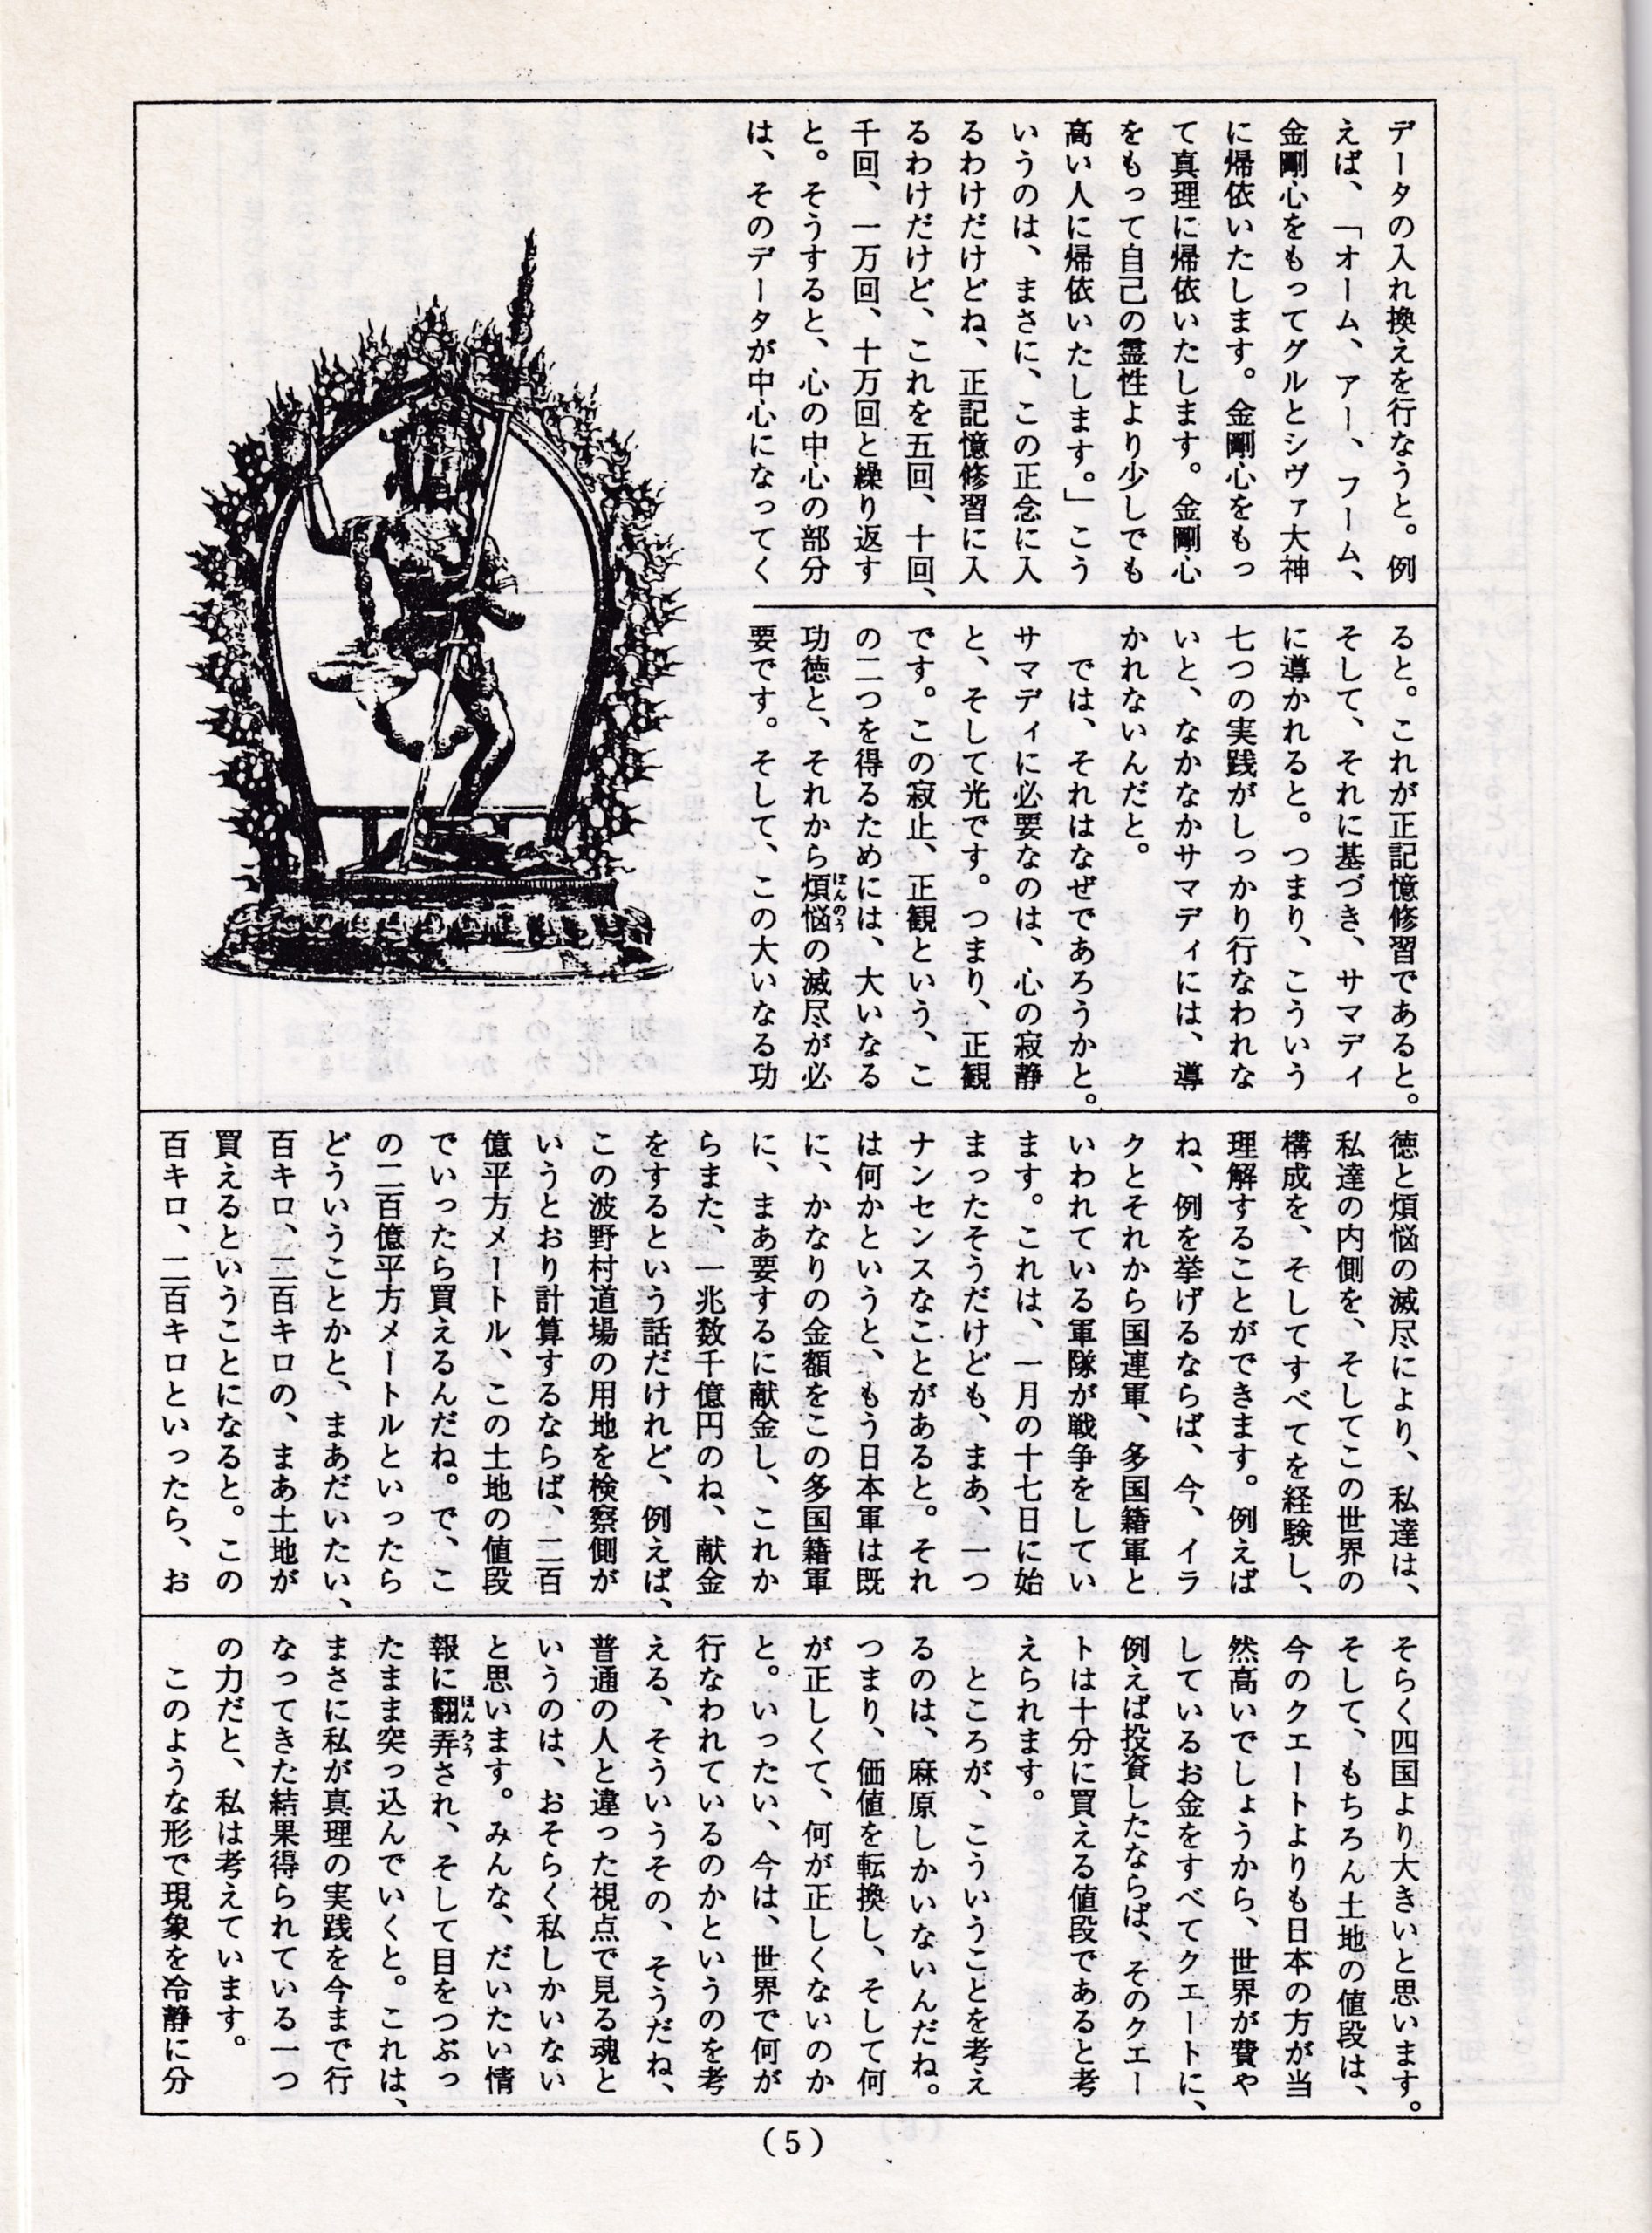 データの入れ換えを行なうと。例
えば、「オーム、アー、フーム、
金剛心をもってグルとシヴァ大神
に帰依いたします。金剛心をもっ
て真理に帰依いたします。金剛心
をもって自己の霊性より少しでも
高い人に帰依いたします。」こう
いうのは、まさに、この正念に入
るわけだけどね、正記憶修習に入
るわけだけど、これを五回、十回、
千回、一万回、十万回と繰り返す
と。そうすると、心の中心の部分
は、そのデータが中心になってく
ると。これが正記憶修習であると。
そして、それに基づき、サマディ
に導かれると。つまり、こういう
七つの実践がしっかり行なわれな
いと、なかなかサマディには、導
かれないんだと。
では、それはなぜであろうかと。
サマディに必要なのは、心の寂静
と、そして光です。つまり、正観
です。この寂止、正観という、こ
の二つを得るためには、大いなる
功徳と、それから煩悩ぼんのうの滅尽が必
要です。そして、この大いなる功
徳と煩悩の滅尽により、私達は、
私達の内側を、そしてこの世界の
構成を、そしてすべてを経験し、
理解することができます。例えば
ね、例を挙げるならば、今、イラ
クとそれから国連軍、多国籍軍と
いわれている軍隊が戦争をしてい
ます。これは、一月の十七日に始
まったそうだけども、まあ、一つ
ナンセンスなことがあると。それ
は何かというと、もう日本軍は既
に、かなりの金額をこの多国籍軍
に、まあ要するに献金し、これか
らまた、一兆数千億円のね、献金
をするという話だけれど、例えば、
この波野村道場の用地を検察側が
いうとおり計算するならば、二百
億平方メートル、この土地の値段
でいったら買えるんだね。で、こ
の二百億平方メートルといったら
どういうことかと、まあだいたい、
百キロ、二百キロの、まあ土地が
買えるということになると。この
百キロ、二百キロといったら、お
そらく四国より大きいと思います。
そして、もちろん土地の値段は、
今のクエートよりも日本の方が当
然高いでしょうから、世界が費や
しているお金をすべてクエートに、
例えば投資したならば、そのクエー
トは十分に買える値段であると考
えられます。
ところが、こういうことを考え
るのは、麻原しかいないんだね。
つまり、価値を転換し、そして何
が正しくて、何が正しくないのか
と。いったい、今は、世界で何が
行なわれているのかというのを考
える、そういうその、そうだね、
普通の人と違った視点で見る魂と
いうのは、おそらく私しかいない
と思います。みんな、だいたい情
報に翻弄ほんろうされ、そして目をつぶっ
たまま突っ込んでいくと。これは、
まさに私が真理の実践を今まで行
なってきた結果得られている一つ
の力だと、私は考えています。
このような形で現象を冷静に分
(5)